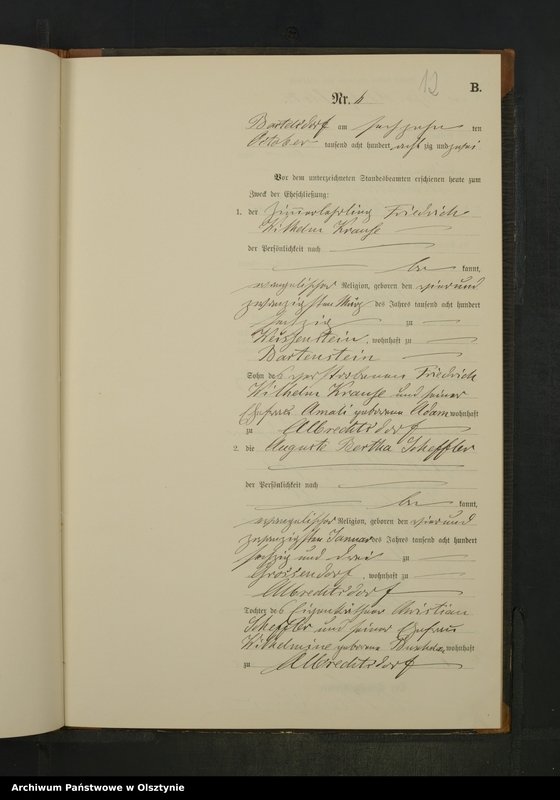 12
B.
Nr. 4
Bartelsdorf am sechszehn ten
October tausend acht hundert acht zig und zwei
Vor dem unterzeichneten Standesbeamten erschienen heute zum
Zweck der Eheschließung:
1. der Zimmerlehrling Friedrich
Wilhelm Krause
der Persönlichkeit nach
be kannt,
evangelischer Religion, geboren den vier und
zwanzigsten März des Jahres tausend acht hundert
sechzig zu
wohnhaft zu
Bartenstein
Sohn des verstorbenen Friedrich
Wilhelm Krause und seiner
Ehefrau Amali geborene Adam wohnhaft
zu Albrechtsdorf
2. die Auguste Bertha Scheffler
der Persönlichkeit nach
be kannt,
evangelischer Religion, geboren den vier und
zwanzigsten Januar des Jahres tausend acht hundert
sechzig und drei zu
Grossendorf, wohnhaft zu
Albrechtsdorf
Tochter des Eigenkäthner Christian
Scheffler und seiner Ehefrau
Wilhelmine geborene wohnhaft
zu Albrechtsdorf
Archiwum Państwowe w Olsztynie